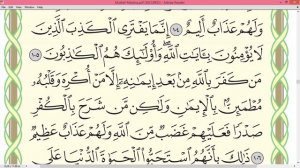 وَلَهُمْ عَذَابٌ أَلِيمٌ ١٠٤ إِنَّمَا يَفْتَرِى ٱلْكَذِبَ ٱلَّذِينَ
لَا يُؤْمِنُونَ بِـَٔايَٰتِ ٱللَّهِ وَأُو۟لَٰٓئِكَ هُمُ ٱلْكَٰذِبُونَ ١٠٥
مَن كَفَرَ بِٱللَّهِ مِنۢ بَعْدِ إِيمَٰنِهِۦٓ إِلَّا مَنْ أُكْرِهَ وَقَلْبُهُۥ
مُطْمَئِنٌّۢ بِٱلْإِيمَٰنِ وَلَٰكِن مَّن شَرَحَ بِٱلْكُفْرِ
صَدْرًا فَعَلَيْهِمْ غَضَبٌ مِّنَ ٱللَّهِ وَلَهُمْ عَذَابٌ عَظِيمٌ ١٠٦
ذَٰلِكَ بِأَنَّهُمُ ٱسْتَحَبُّوا۟ ٱلْحَيَوٰةَ ٱلدُّنْيَا عَلَى